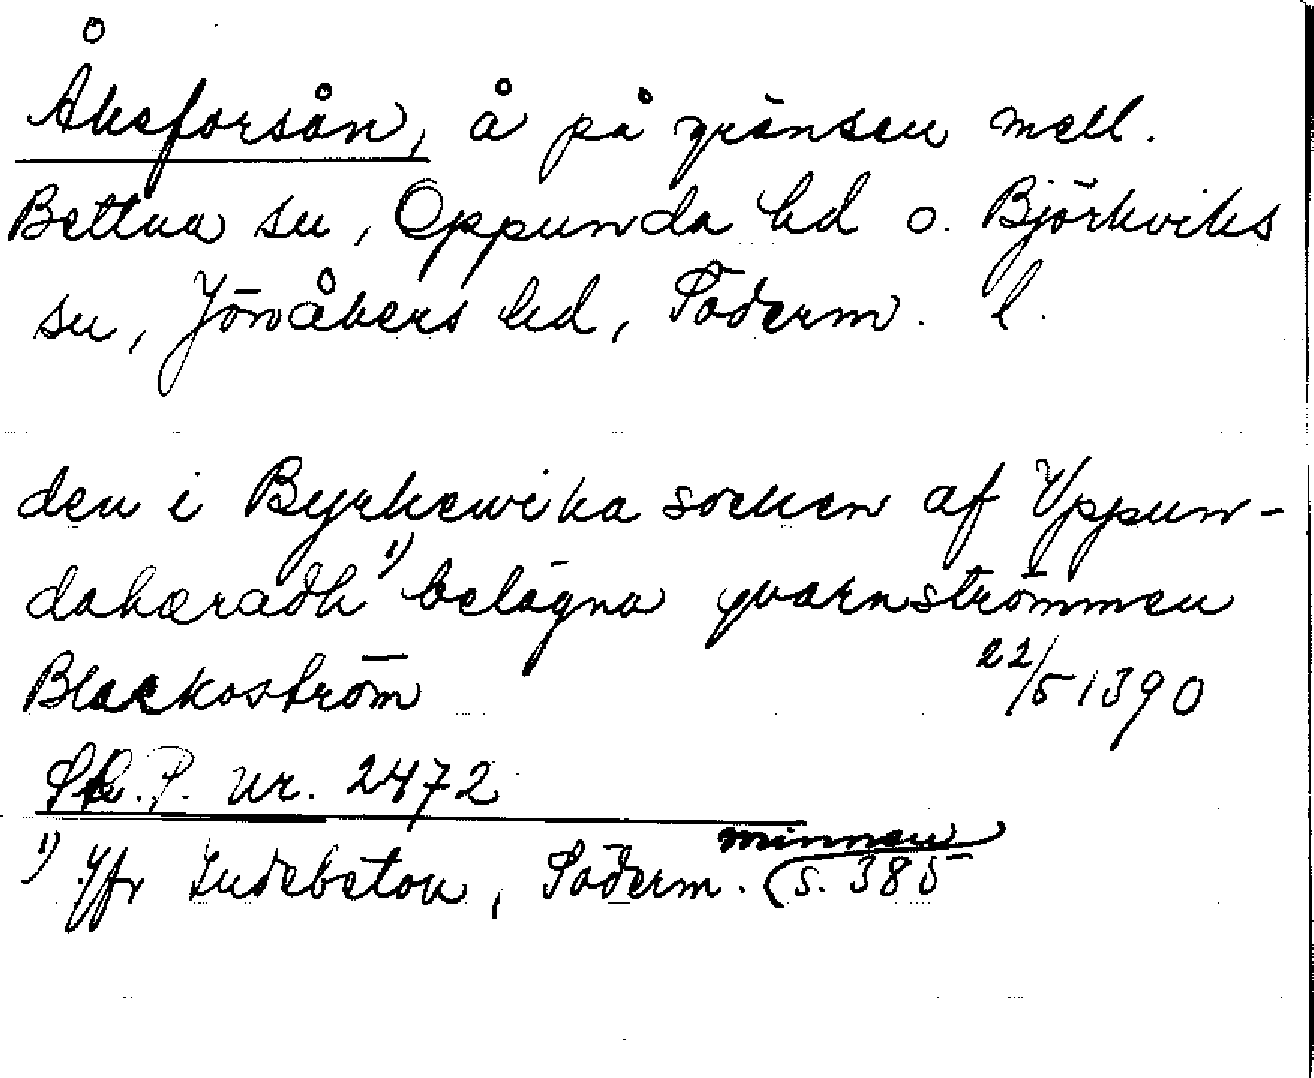 Åkeforsån, å på gränsen mell.
Bettna sn, Oppunda hd o. Björkviks
sn, Jönåkers hd, Söderm. l.
den i Byrkewika socken af Vppun-
dahæradh ¹⁾ belägna qvarnströmmen
Blackoström 22/5 1390
SRP. nr. 2472
¹⁾ Jfr Indebetou, Söderm. minnen s. 385